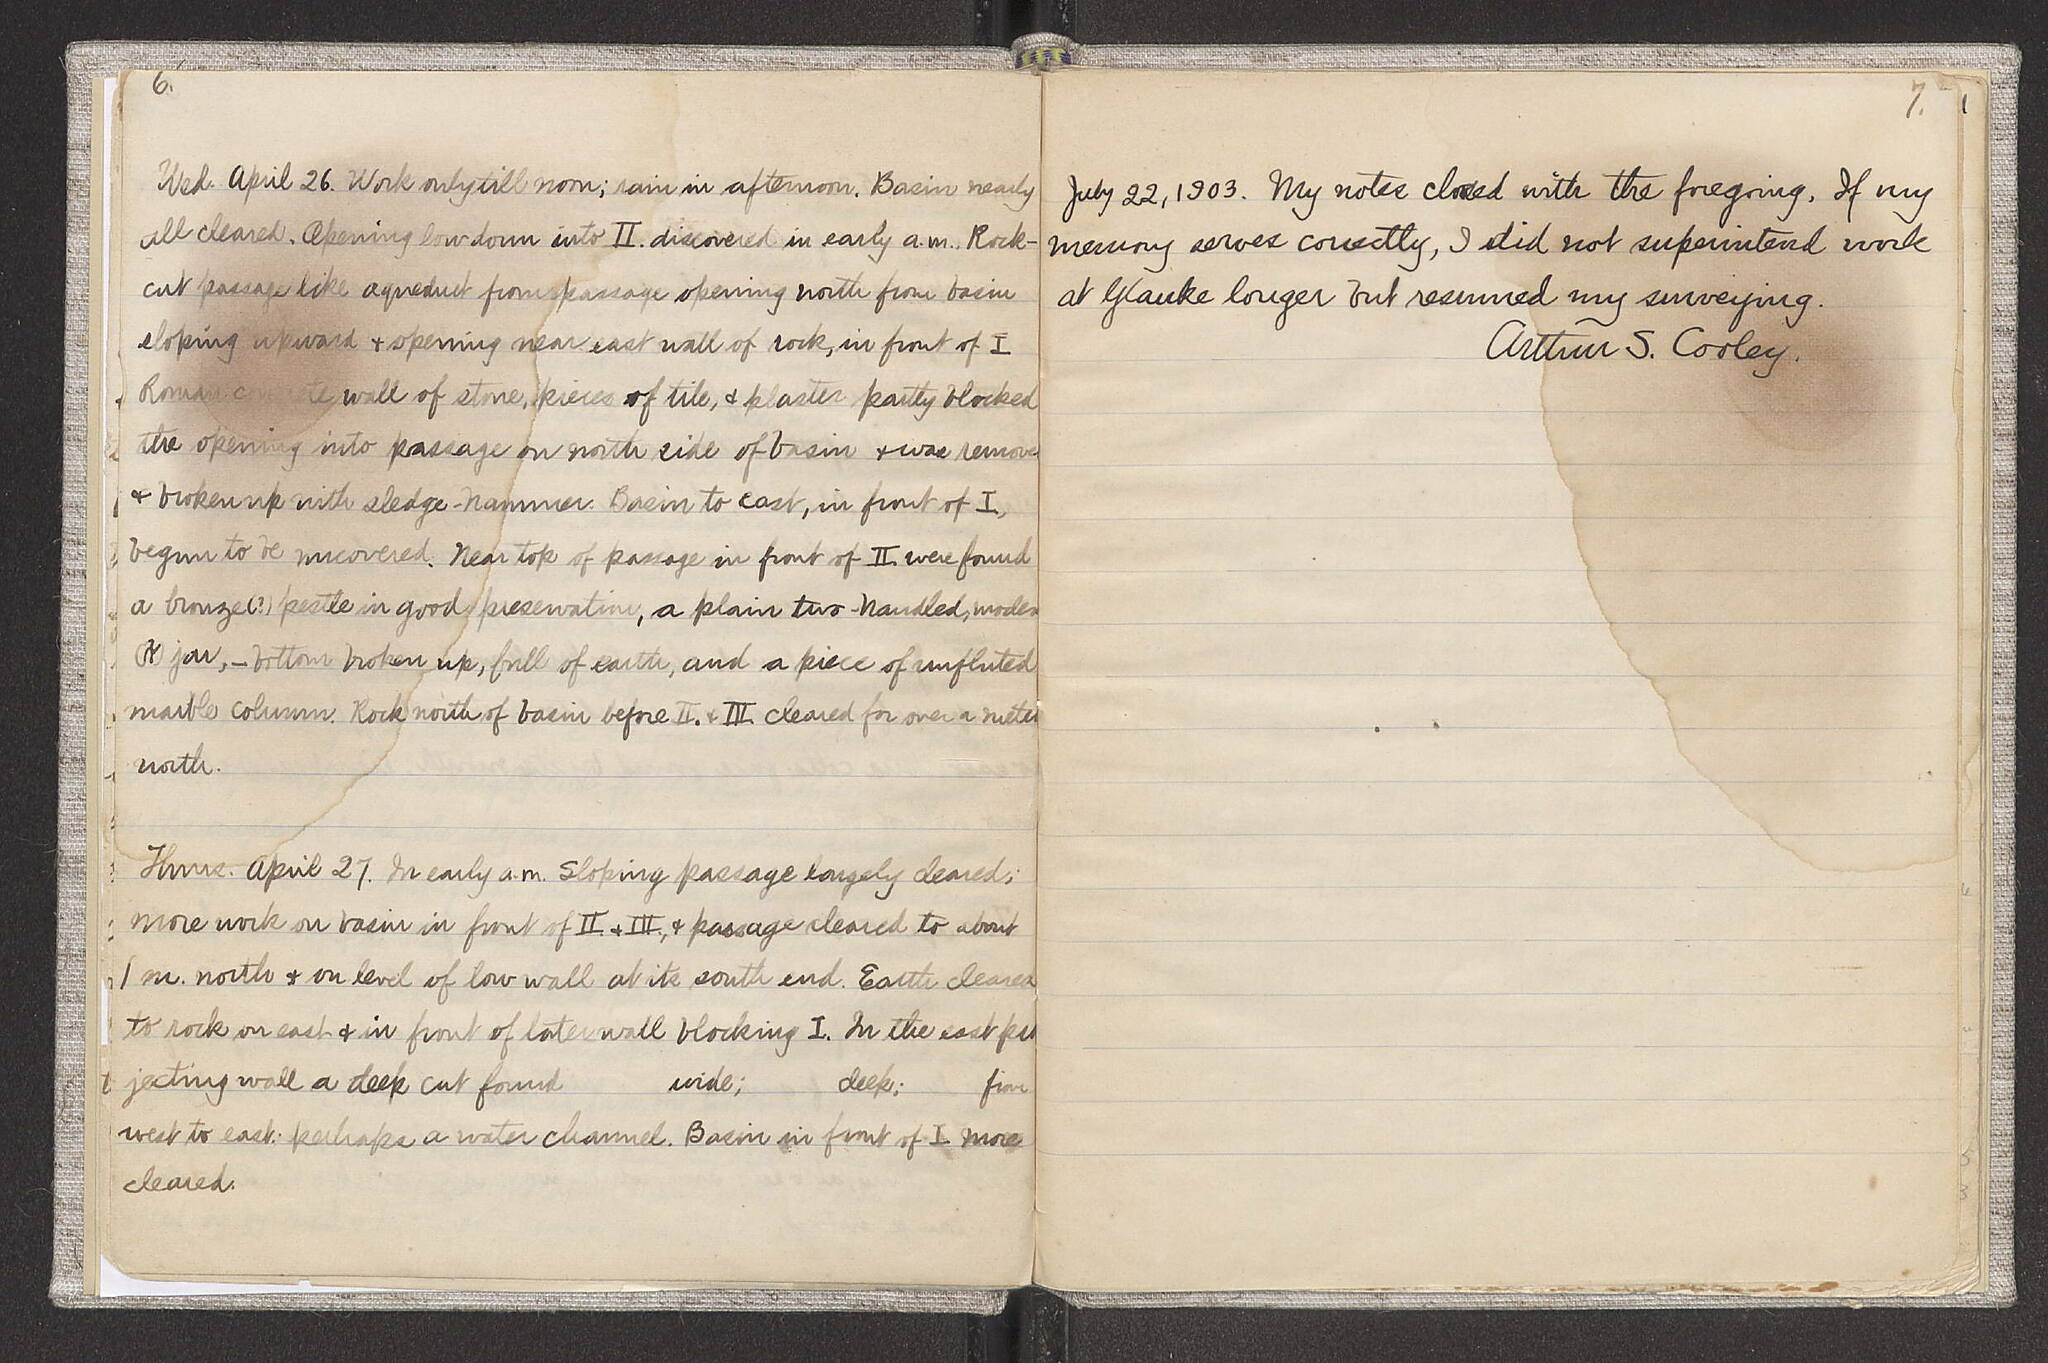 6.
Wed. April 26. Work only till noon; rain in afternoon. Basin nearly
all cleared. Opening low down into II. discovered in early a.m. Rock-
cut passage like aqueduct from passage opening north from basin
sloping upward & opening near east wall of rock, in front of I
Roman wall of stone, pieces of tile, & plaster partly blocked
the opening into passage on north side of basin & was remove
& broken up with sledge-hammer. Basin to east, in front of I,
begun to be uncovered. Near top of passage in front of II. were found
a bronze(?) pestle in good preservation, a plain two-handled, modern
(?) jar, – bottom broken up, full of earth, and a piece of unfluted
marble column. Rock north of basin before II. & III. cleared for over a meter
north.
Thurs. April 27. In early a.m. Sloping passage largely cleared;
more work on basin in front of II. & III., & passage cleared to about
1 m. north & on level of low wall at its south end. Earth cleared
to rock on east & in front of later wall blocking I. In the east pro
jecting wall a deep cut found wide; deep; from
west to east: perhaps a water channel. Basin in front of I more
cleared.
7.
July 22, 1903. My notes closed with the foregoing. If my
memory serves correctly, I did not superintend work
at Glauke longer but resumed my surveying.
Arthur S. Cooley.